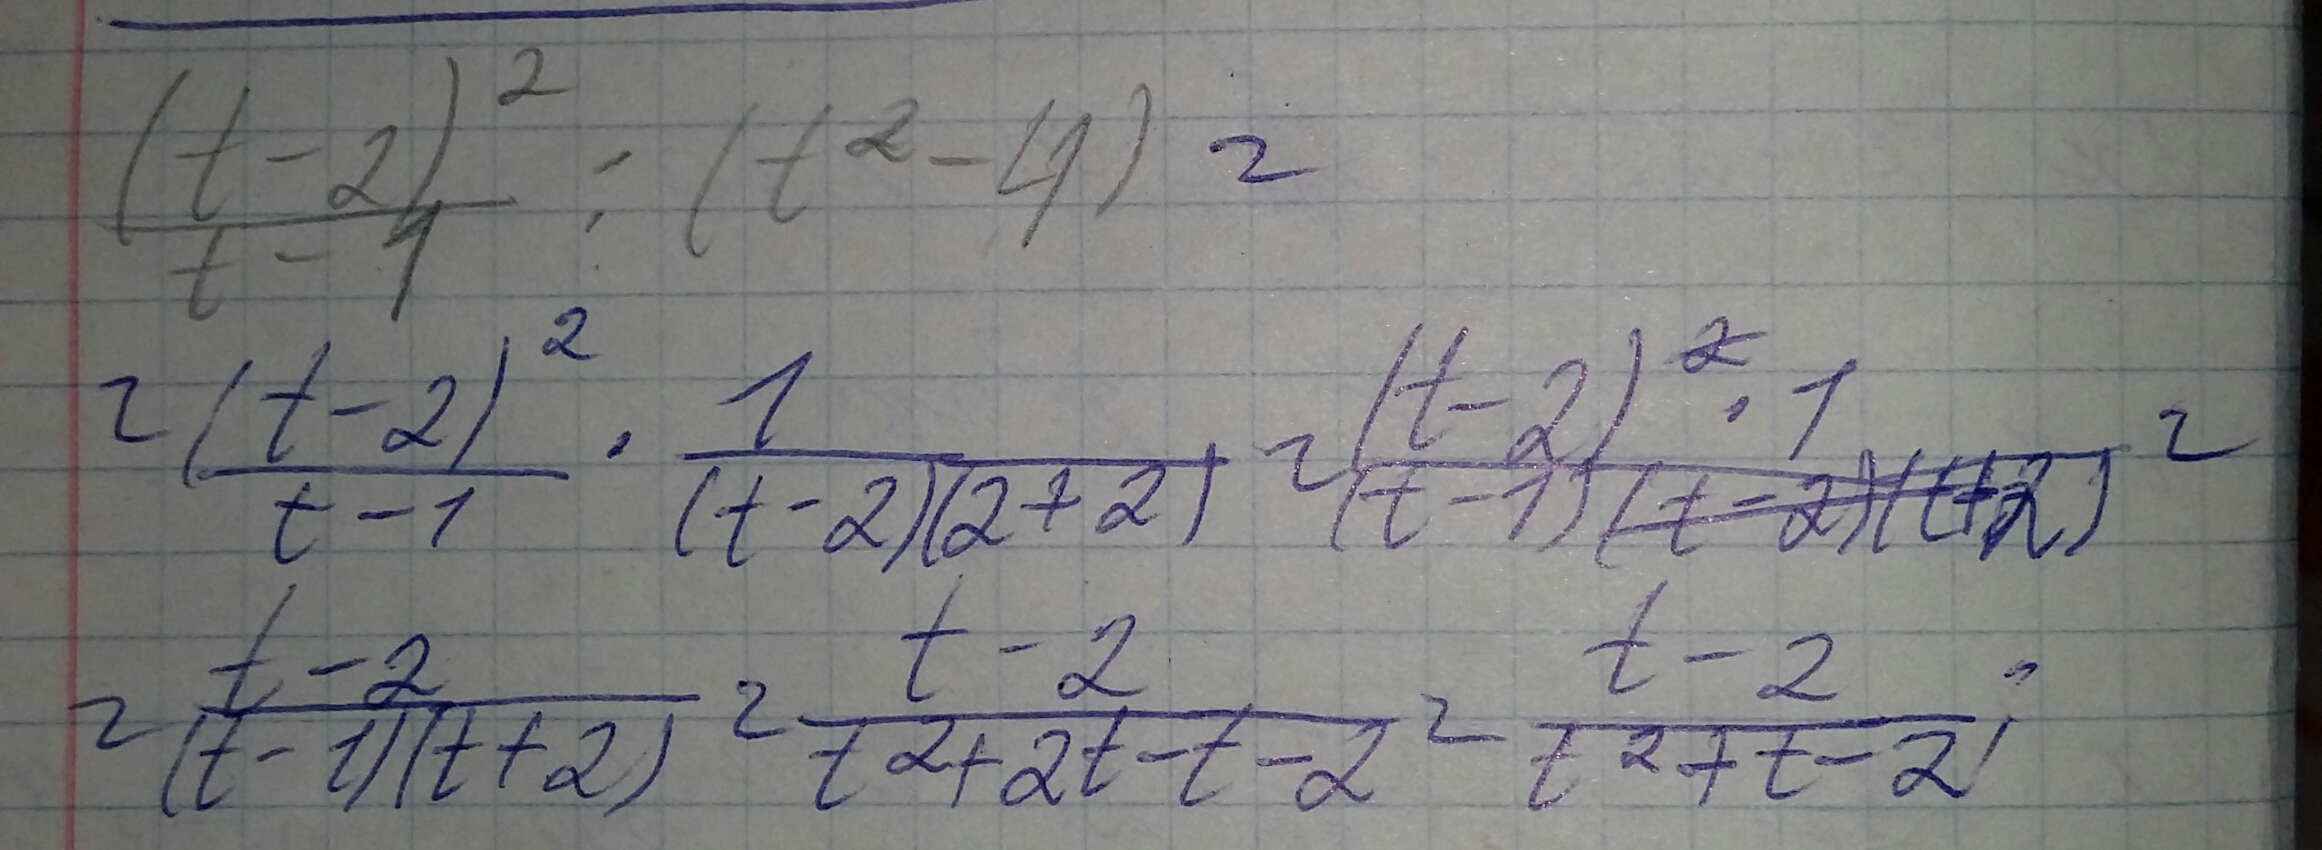 (t-2)²/(t-1) : (t²-4) =
= (t-2)²/(t-1) · 1/((t-2)(2+2)) = ((t-2)²·1)/((t-1)(t-2)(t+2)) =
= (t-2)/((t-1)(t+2)) = (t-2)/(t²+2t-t-2) = (t-2)/(t²+t-2);